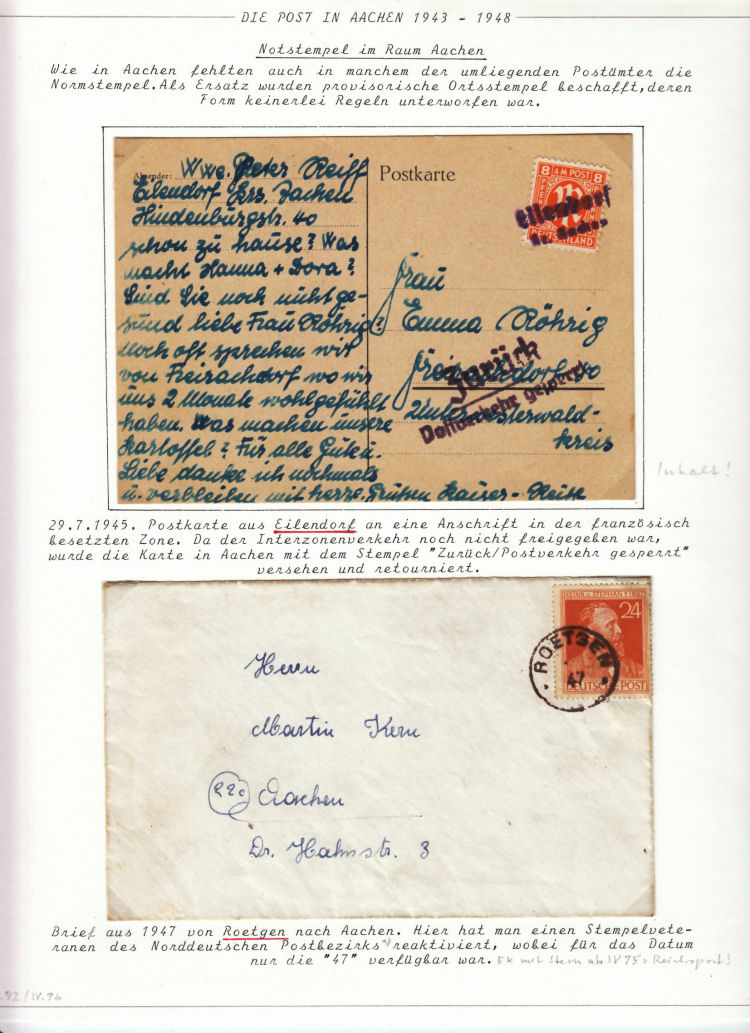 DIE POST IN AACHEN 1943 - 1948
Notstempel im Raum Aachen
Wie in Aachen fehlten auch in manchem der umliegenden Postämter die
Normstempel.Als Ersatz wurden provisorische Ortsstempel beschafft,deren
Form keinerlei Regeln unterworfen war.
Absender: Wwe. Peter Reiff
Eilendorf Krs. Aachen
Hindenburgstr. 40
schon zu hause? Was
macht Hanna + Dora?
Sind Sie noch nicht ge-
sund liebe Frau Röhrig?
Noch oft sprechen wir
von Freirachdorf wo wir
uns 2 Monate wohlgefühlt
haben. Was machen unsere
Kartoffel? Für alle Guten.
Liebe danke ich nochmals
u. verbleiben mit herzl. Grüßen Kaiser-Reise
Postkarte
8 AM POST 8
PFENNIG
DEUTSCHLAND
Eilendorf
Kr. Aachen
Frau
Emma Röhrig
Freirachdorf 40
Unterwesterwald-
kreis
Zurück
Postverkehr gesperrt
Inhalt!
29.7.1945. Postkarte aus Eilendorf an eine Anschrift in der französisch
besetzten Zone. Da der Interzonenverkehr noch nicht freigegeben war,
wurde die Karte in Aachen mit dem Stempel "Zurück/Postverkehr gesperrt"
versehen und retourniert.
HEINR. v. STEPHAN † 1897
24
DEUTSCHE POST
ROETGEN
47
Herrn
Martin Kern
22c Aachen
Dr. Hahnstr. 3
Brief aus 1947 von Roetgen nach Aachen. Hier hat man einen Stempelvete-
ranen des Norddeutschen Postbezirks reaktiviert, wobei für das Datum
nur die "47" verfügbar war. EK mit Stern ab 1875 = Reichspost!
.92/IV.96